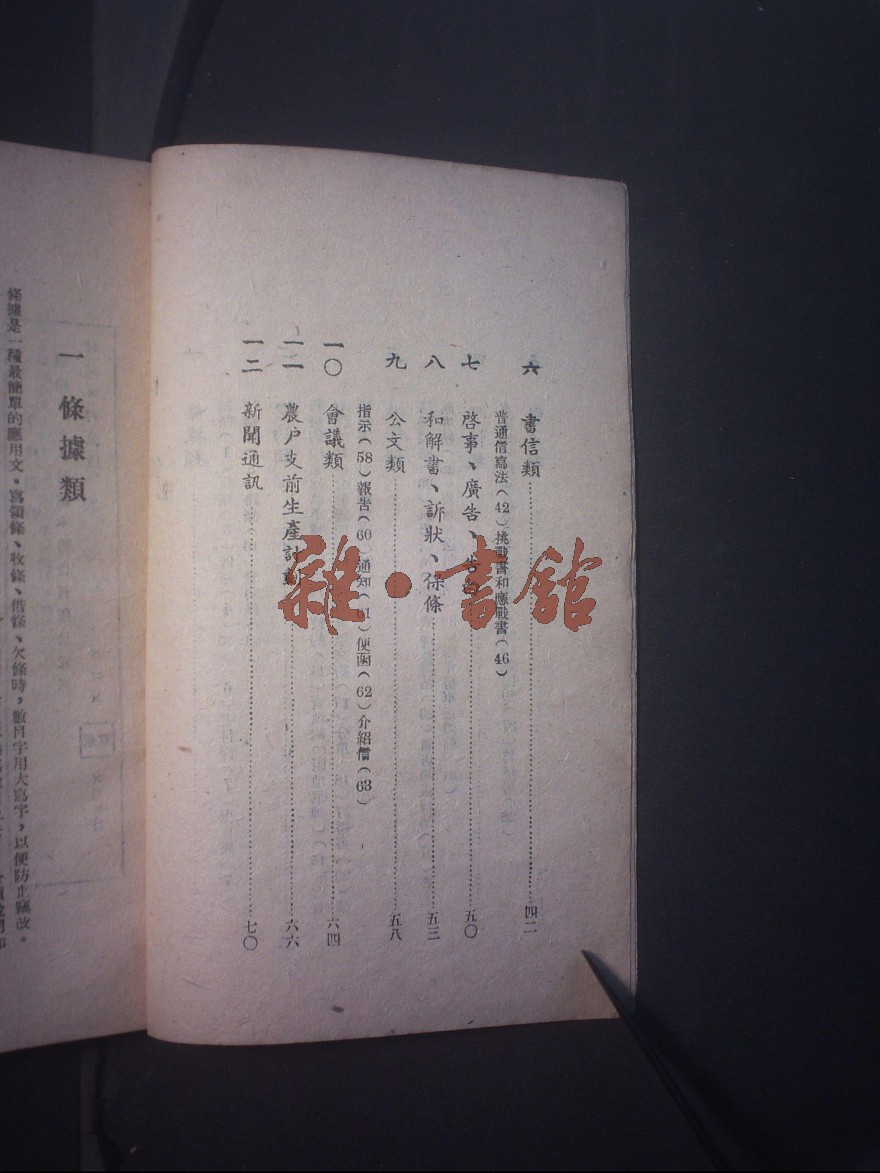 六 書信類 四二
普通信寫法(42)挑戰書和應戰書(46)
七 啓事、廣告、告白 五〇
八 和解書、訴狀、保條 五三
九 公文類 五八
指示(58)報告(60)通知(61)便函(62)介紹信(63)
一〇 會議類 六四
一一 農戶支前生產計劃 六六
一二 新聞通訊 七〇
雜·書館
一 條據類
條據是一種最簡單的應用文。寫領條、收條、借條、欠條時,數目字用大寫字,以便防止竄改。